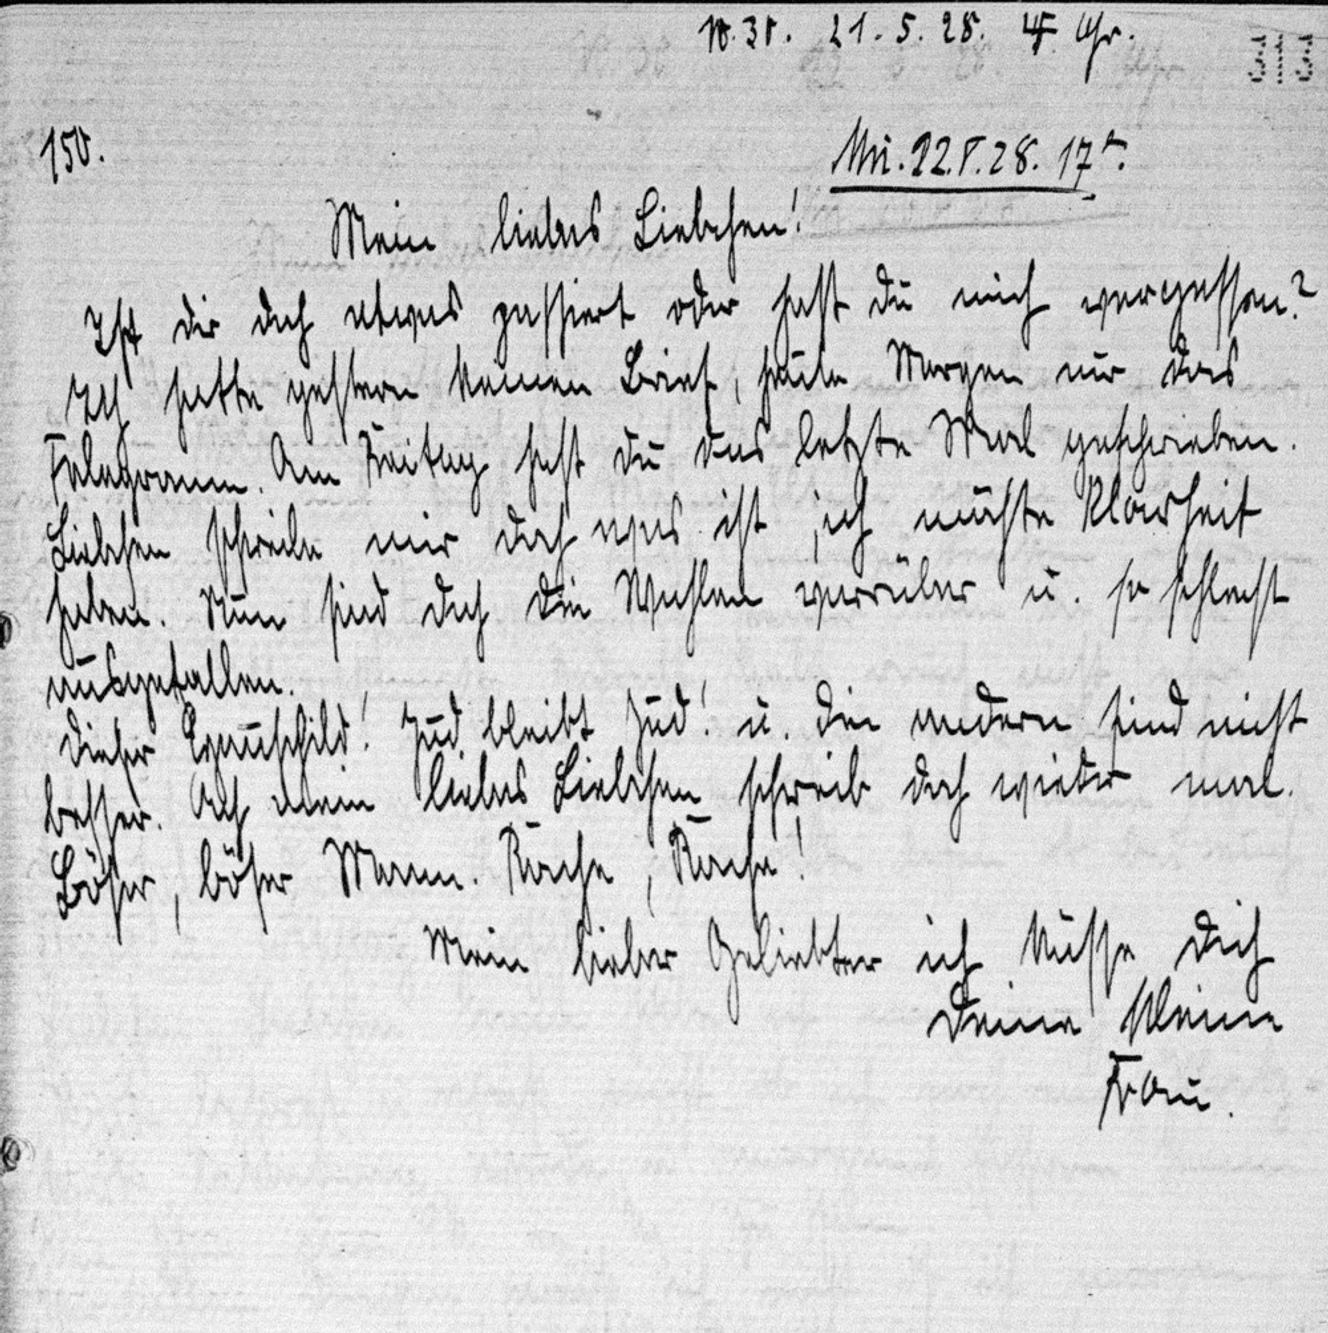 N. 31. 21. 5. 28. 4 Uhr.
150.
Mü. 22.V.28. 17
Mein liebes Liebchen!
Ist dir doch etwas passiert oder hast du mich vergessen?
Ich hatte gestern keinen Brief, heute Morgen nur das
Telegramm. Am Freitag hast du das letzte Mal geschrieben.
Liebchen schreibe mir doch was ist, ich möchte Klarheit
haben. Nun sind doch die Wahlen vorüber u. so schlecht
ausgefallen.
Dieser Jud bleibt Jud! u. die andern sind nicht
besser. Ach mein liebes Liebchen schreib doch wieder mal.
Böser, böser Mann. Rache, Rache!
Mein lieber Geliebter ich küsse dich
Deine kleine
Frau.